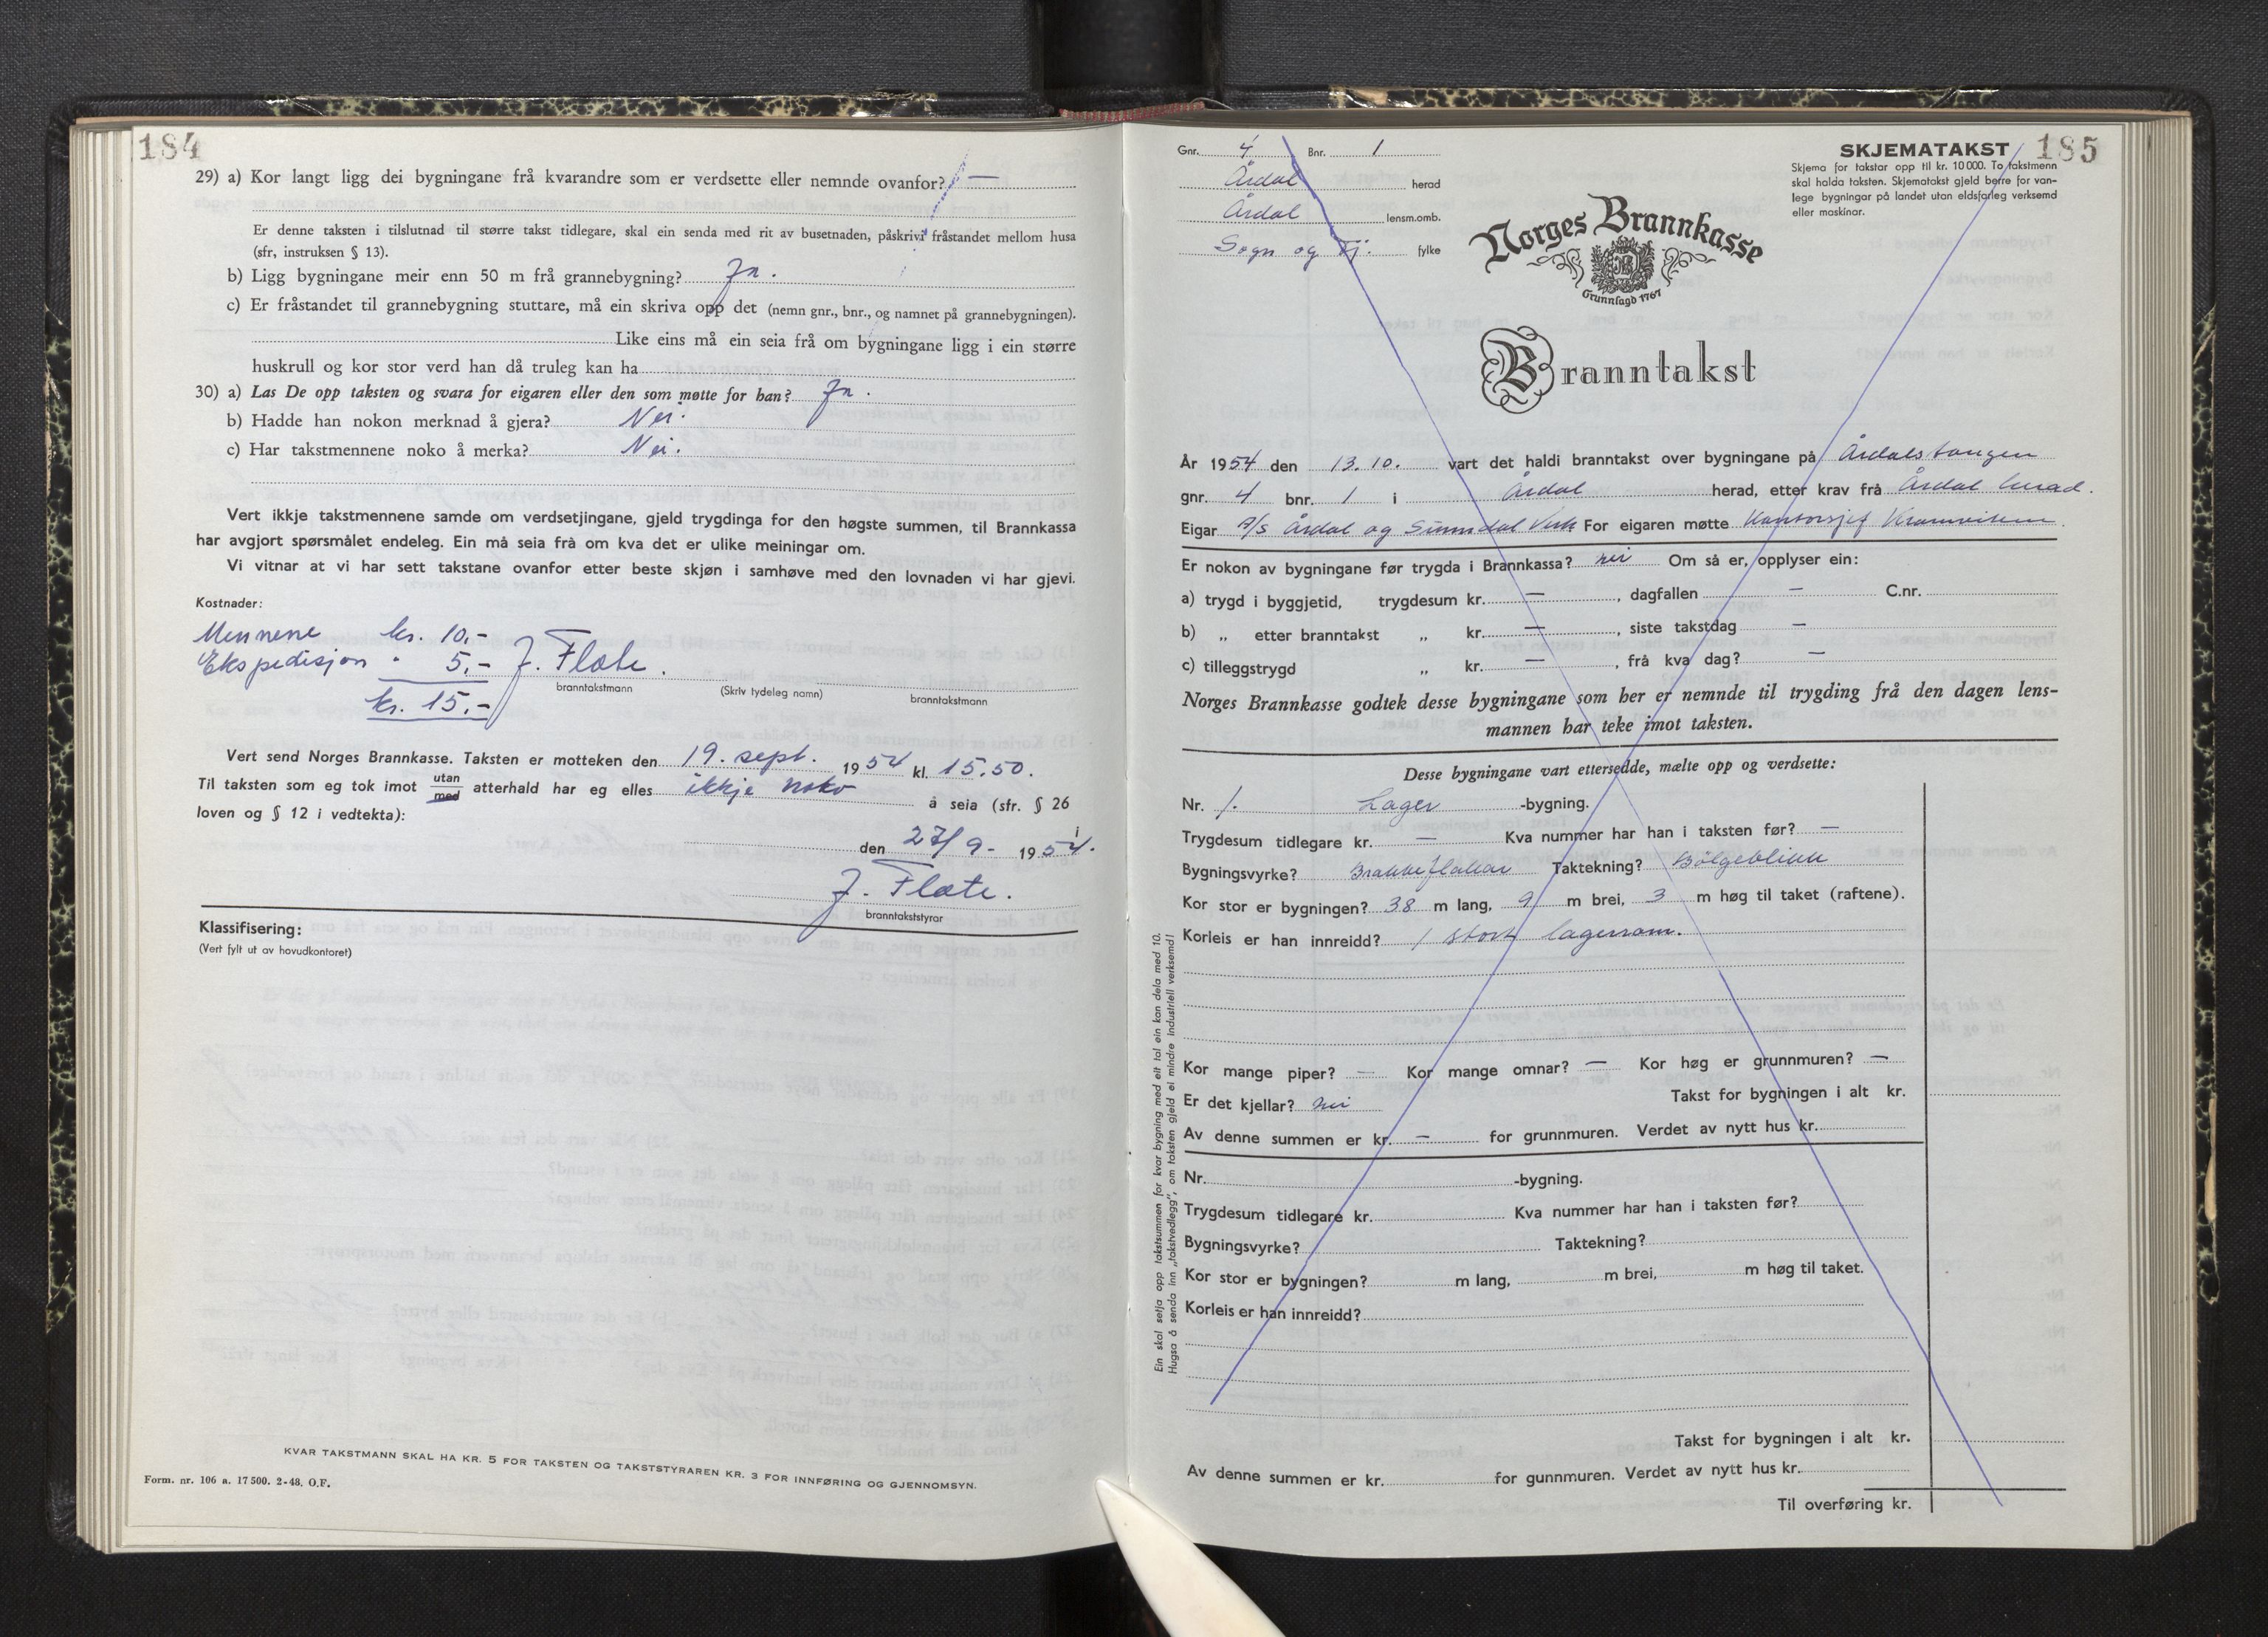 184
29) a) Kor langt ligg dei bygningane frå kvarandre som er verdsette eller nemnde ovanfor? —
Er denne taksten i tilslutnad til større takst tidlegare, skal ein senda med rit av busetnaden, påskrivi fråstandet mellom husa
(sfr, instruksen § 13).
b) Ligg bygningane meir enn 50 m frå grannebygning? Ja.
c) Er fråstandet til grannebygning stuttare, må ein skriva opp det (nemn gnr., bnr., og namnet på grannebygningen).
Like eins må ein seia frå om bygningane ligg i ein større
huskrull og kor stor verd han då truleg kan ha
30) a) Las De opp taksten og svara for eigaren eller den som møtte for han? Ja.
b) Hadde han nokon merknad å gjera? Nei.
c) Har takstmennene noko å merka? Nei.
Vert ikkje takstmennene samde om verdsetjingane, gjeld trygdinga for den høgste summen, til Brannkassa
har avgjort spørsmålet endeleg. Ein må seia frå om kva det er ulike meiningar om.
Vi vitnar at vi har sett takstane ovanfor etter beste skjøn i samhøve med den lovnaden vi har gjevi.
Kostnader:
Mennene kr. 10,-
Ekspedisjon " 5,- J. Flate.
branntakstmann (Skriv tydeleg namn) branntakstmann
kr. 15,-
Vert send Norges Brannkasse. Taksten er motteken den 19. sept. 1954 kl. 15.50.
Til taksten som eg tok imot utan med atterhald har eg elles ikkje noko å seia (sfr. § 26
loven og § 12 i vedtekta):
den 27/9- 1954.
J. Flate.
branntakststyrar
Klassifisering:
(Vert fylt ut av hovudkontoret)
KVAR TAKSTMANN SKAL HA KR. 5 FOR TAKSTEN OG TAKSTSTYRAREN KR. 3 FOR INNFØRING OG GJENNOMSYN.
Form. nr. 106 a. 17 500. 2-48. O.F.
Gnr. 4 Bnr. 1
Årdal herad
Årdal lensm.omb.
Sogn og Fj. fylke
SKJEMATAKST 185
Skjema for takstar opp til kr. 10 000. To takstmenn
skal halda taksten. Skjematakst gjeld berre for van-
lege bygningar på landet utan eldsfarleg verksemd
eller maskinar.
Norges Brannkasse
Grunnlagd 1767
Branntakst
År 1954 den 13.10. vart det haldi branntakst over bygningane på Årdalstangen
gnr. 4 bnr. 1 i Årdal herad, etter krav frå Årdal herad.
Eigar A/S Årdal og Sunndal Verk For eigaren møtte Kontorsjef
Er nokon av bygningane før trygda i Brannkassa? nei Om så er, opplyser ein:
a) trygd i byggjetid, trygdesum kr. —, dagfallen — C.nr.
b) „ etter branntakst „ kr. —, siste takstdag —
c) tilleggstrygd „ kr. —, frå kva dag? —
Norges Brannkasse godtek desse bygningane som her er nemnde til trygding frå den dagen lens-
mannen har teke imot taksten.
Desse bygningane vart ettersedde, mælte opp og verdsette:
Nr. 1. Lager -bygning.
Trygdesum tidlegare kr. — Kva nummer har han i taksten før? —
Bygningsvyrke? Brakkeflakar Taktekning? Bölgeblikk
Kor stor er bygningen? 38 m lang, 9 m brei, 3 m høg til taket (raftene).
Korleis er han innreidd? 1 stort lagerrom.
Kor mange piper? — Kor mange omnar? — Kor høg er grunnmuren? —
Er det kjellar? nei Takst for bygningen i alt kr.
Av denne summen er kr. — for grunnmuren. Verdet av nytt hus kr.
Nr. -bygning.
Trygdesum tidlegare kr. Kva nummer har han i taksten før?
Bygningsvyrke? Taktekning?
Kor stor er bygningen? m lang, m brei, m høg til taket.
Korleis er han innreidd?
Takst for bygningen i alt kr.
Av denne summen er kr. for gunnmuren. Verdet av nytt hus kr.
Til overføring kr.
Ein skal setja opp takstsummen for kvar bygning med eit tal ein kan dela med 10.
Hugsa å senda inn „takstvedlegg", om taksten gjeld ei mindre industriell verksemd!